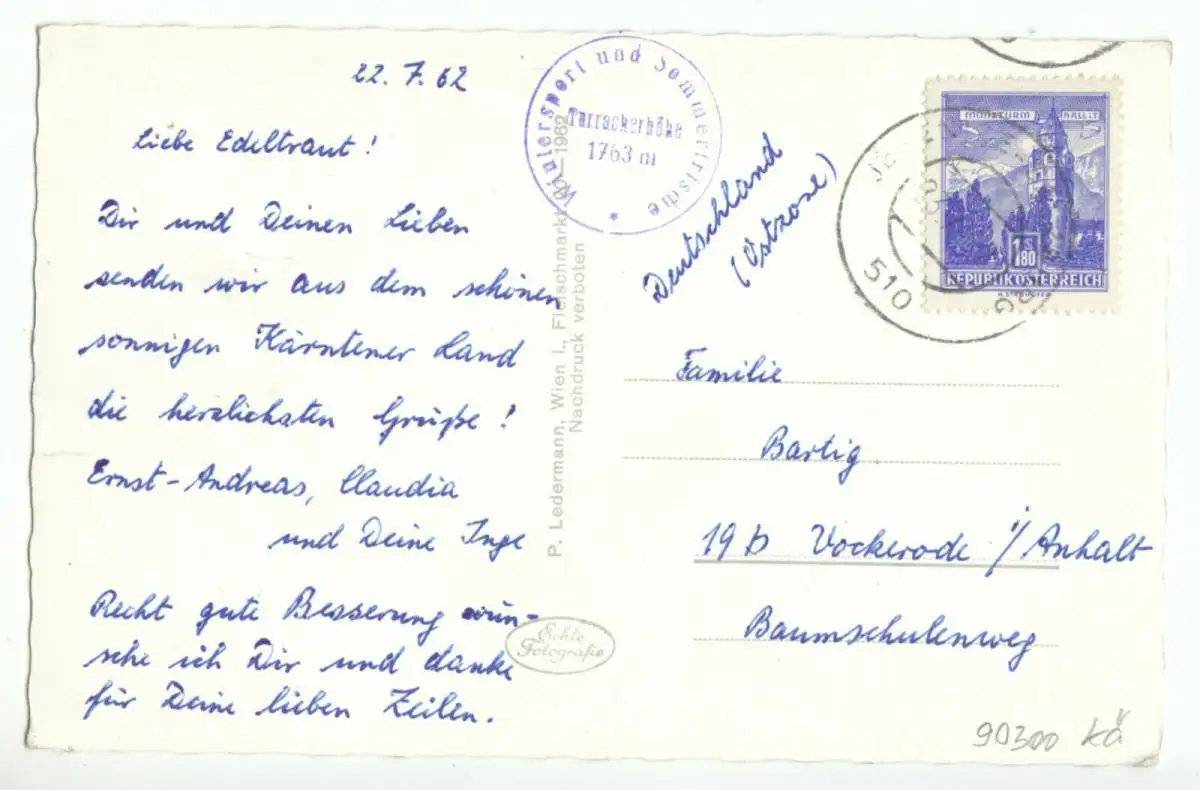 22. 7. 62
Liebe Edeltraut!
Dir und Deinen Lieben
senden wir aus dem schönen
sonnigen Kärntener Land
die herzlichsten Grüße!
Ernst-Andreas, Claudia
und Deine Inge
Recht gute Besserung wün-
sche ich Dir und danke
für Deine lieben Zeilen.
Wintersport und Sommerfrische
Turracherhöhe
1763 m
P. Ledermann, Wien I., Fleischmarkt 1962
Nachdruck verboten
Echte
Fotografie
Deutschland
(Ostzone)
MÜNZTURM HALL I.T.
S 1.80
REPUBLIK ÖSTERREICH
510
Familie
Bartig
19b Vockerode i/Anhalt
Baumschulenweg
90300 Kä